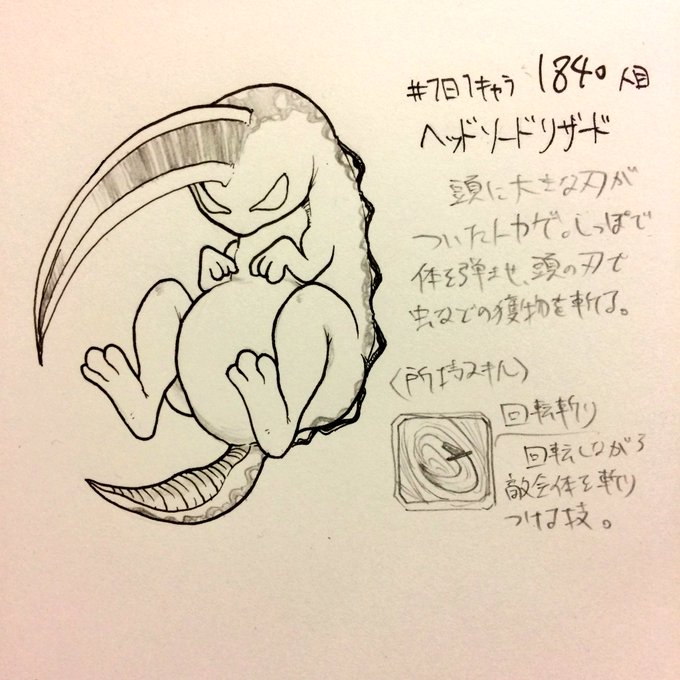 #1日1キャラ 1840人目
ヘッドソードリザード
頭に大きな刃が
ついたトカゲ。しっぽで
体を弾ませ、頭の刃で
虫などの獲物を斬る。
〈所持スキル〉
回転斬り
回転しながら
敵全体を斬り
つける技。